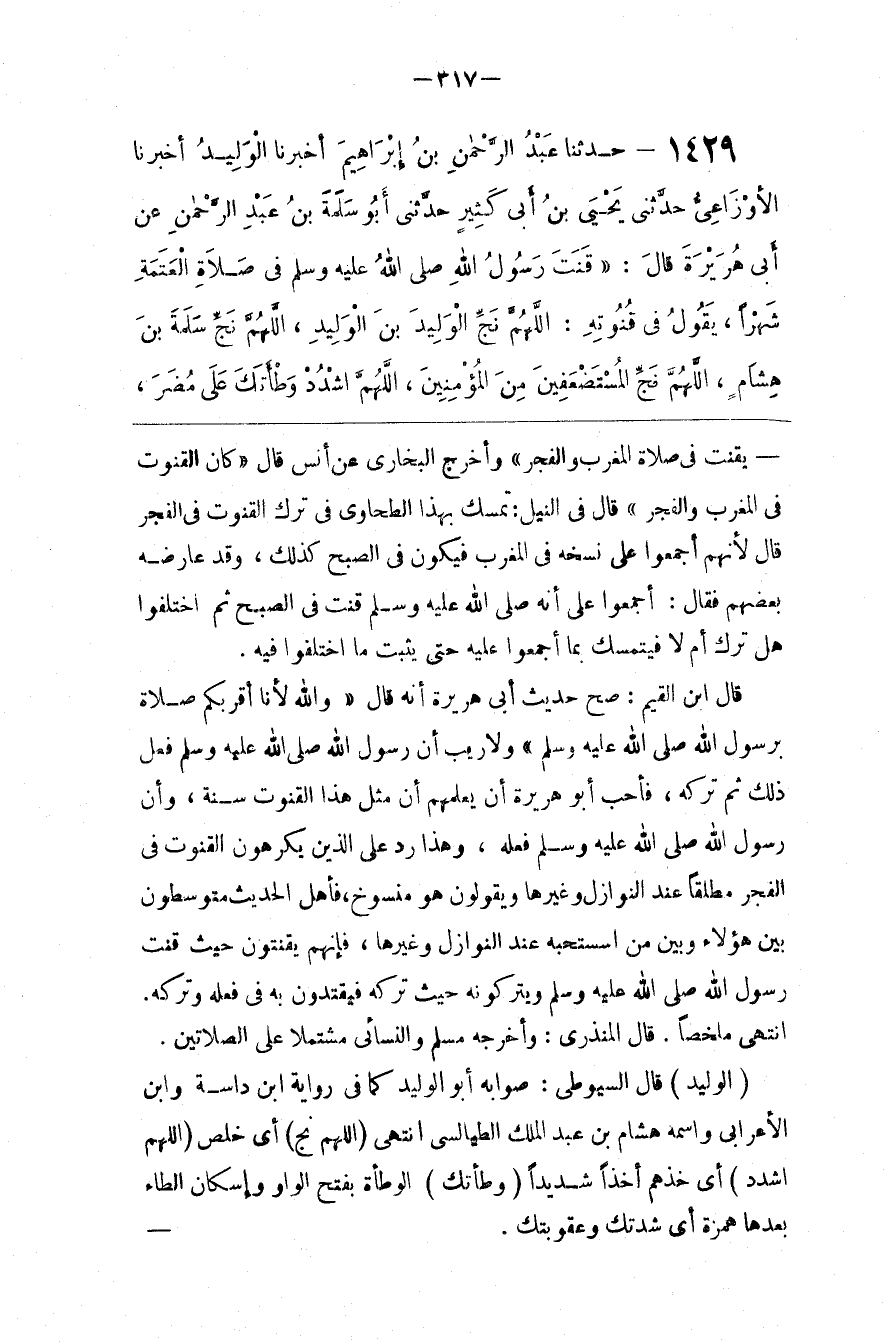 —٣١٧—
١٤٢٩ — حـدثنا عَبْدُ الرَّحْمٰنِ بنُ إِبْرَاهِيمَ أخبرنا الْوَلِيـدُ أخبرنا
الأوْزَاعِىُّ حدَّثنى يَحْيَى بنُ أَبى كَثِيرٍ حدَّثنى أَبُو سَلَمَةَ بنُ عَبْدِ الرَّحْمٰنِ عن
أَبى هُرَيْرَةَ قالَ : « قَنَتَ رَسُولُ اللهِ صلى اللهُ عليه وسلم فى صَـلاَةِ الْعَتَمَةِ
شَهْرًا ، يَقُولُ فى قُنُوتِهِ : اللَّهُمَّ نَجِّ الْوَلِيدَ بنَ الْوَلِيدِ ، اللَّهُمَّ نَجِّ سَلَمَةَ بنَ
هِشَامٍ ، اللَّهُمَّ نَجِّ المُسْتَضْعَفِينَ مِنَ المُؤْمِنِينَ ، اللَّهُمَّ اشْدُدْ وَطْأَتَكَ عَلَى مُضَرَ ،
— يقنت فى صلاة المغرب والفجر» وأخرج البخارى عن أنس قال «كان القنوت
فى المغرب والفجر » قال فى النيل: تمسك بهذا الطحاوى فى ترك القنوت فى الفجر
قال لأنهم أجمعوا على نسخه فى المغرب فيكون فى الصبح كذلك ، وقد عارضـه
بعضهم فقال : أجمعوا على أنه صلى الله عليه وسـلم قنت فى الصبـح ثم اختلفوا
هل ترك أم لا فيتمسك بما أجمعوا عليه حتى يثبت ما اختلفوا فيه .
قال ابن القيم : صح حديث أبى هريرة أنه قال « والله لأنا أقربكم صـلاة
برسول الله صلى الله عليه وسلم » ولاريب أن رسول الله صلى الله عليه وسلم فعل
ذلك ثم تركه ، فأحب أبو هريرة أن يعلمهم أن مثل هذا القنوت سـنة ، وأن
رسول الله صلى الله عليه وسـلم فعله ، وهذا رد على الذين يكرهون القنوت فى
الفجر مطلقاً عند النوازل وغيرها ويقولون هو منسوخ، فأهل الحديث متوسطون
بين هؤلاء وبين من اسستحبه عند النوازل وغيرها ، فإنهم يقنتون حيث قنت
رسول الله صلى الله عليه وسلم ويتركونه حيث تركه فيقتدون به فى فعله وتركه.
انتهى ملخصاً . قال المنذرى : وأخرجه مسلم والنسائى مشتملا على الصلاتين .
( الوليد ) قال السيوطى : صوابه أبو الوليد كما فى رواية ابن داسـة وابن
الأعرابى واسمه هشام بن عبد الملك الطيالسى انتهى (اللهم نج) أى خلص (اللهم
اشدد ) أى خذهم أخذاً شـديداً ( وطأتك ) الوطأة بفتح الواو وإسكان الطاء
بعدها همزة أى شدتك وعقوبتك . —